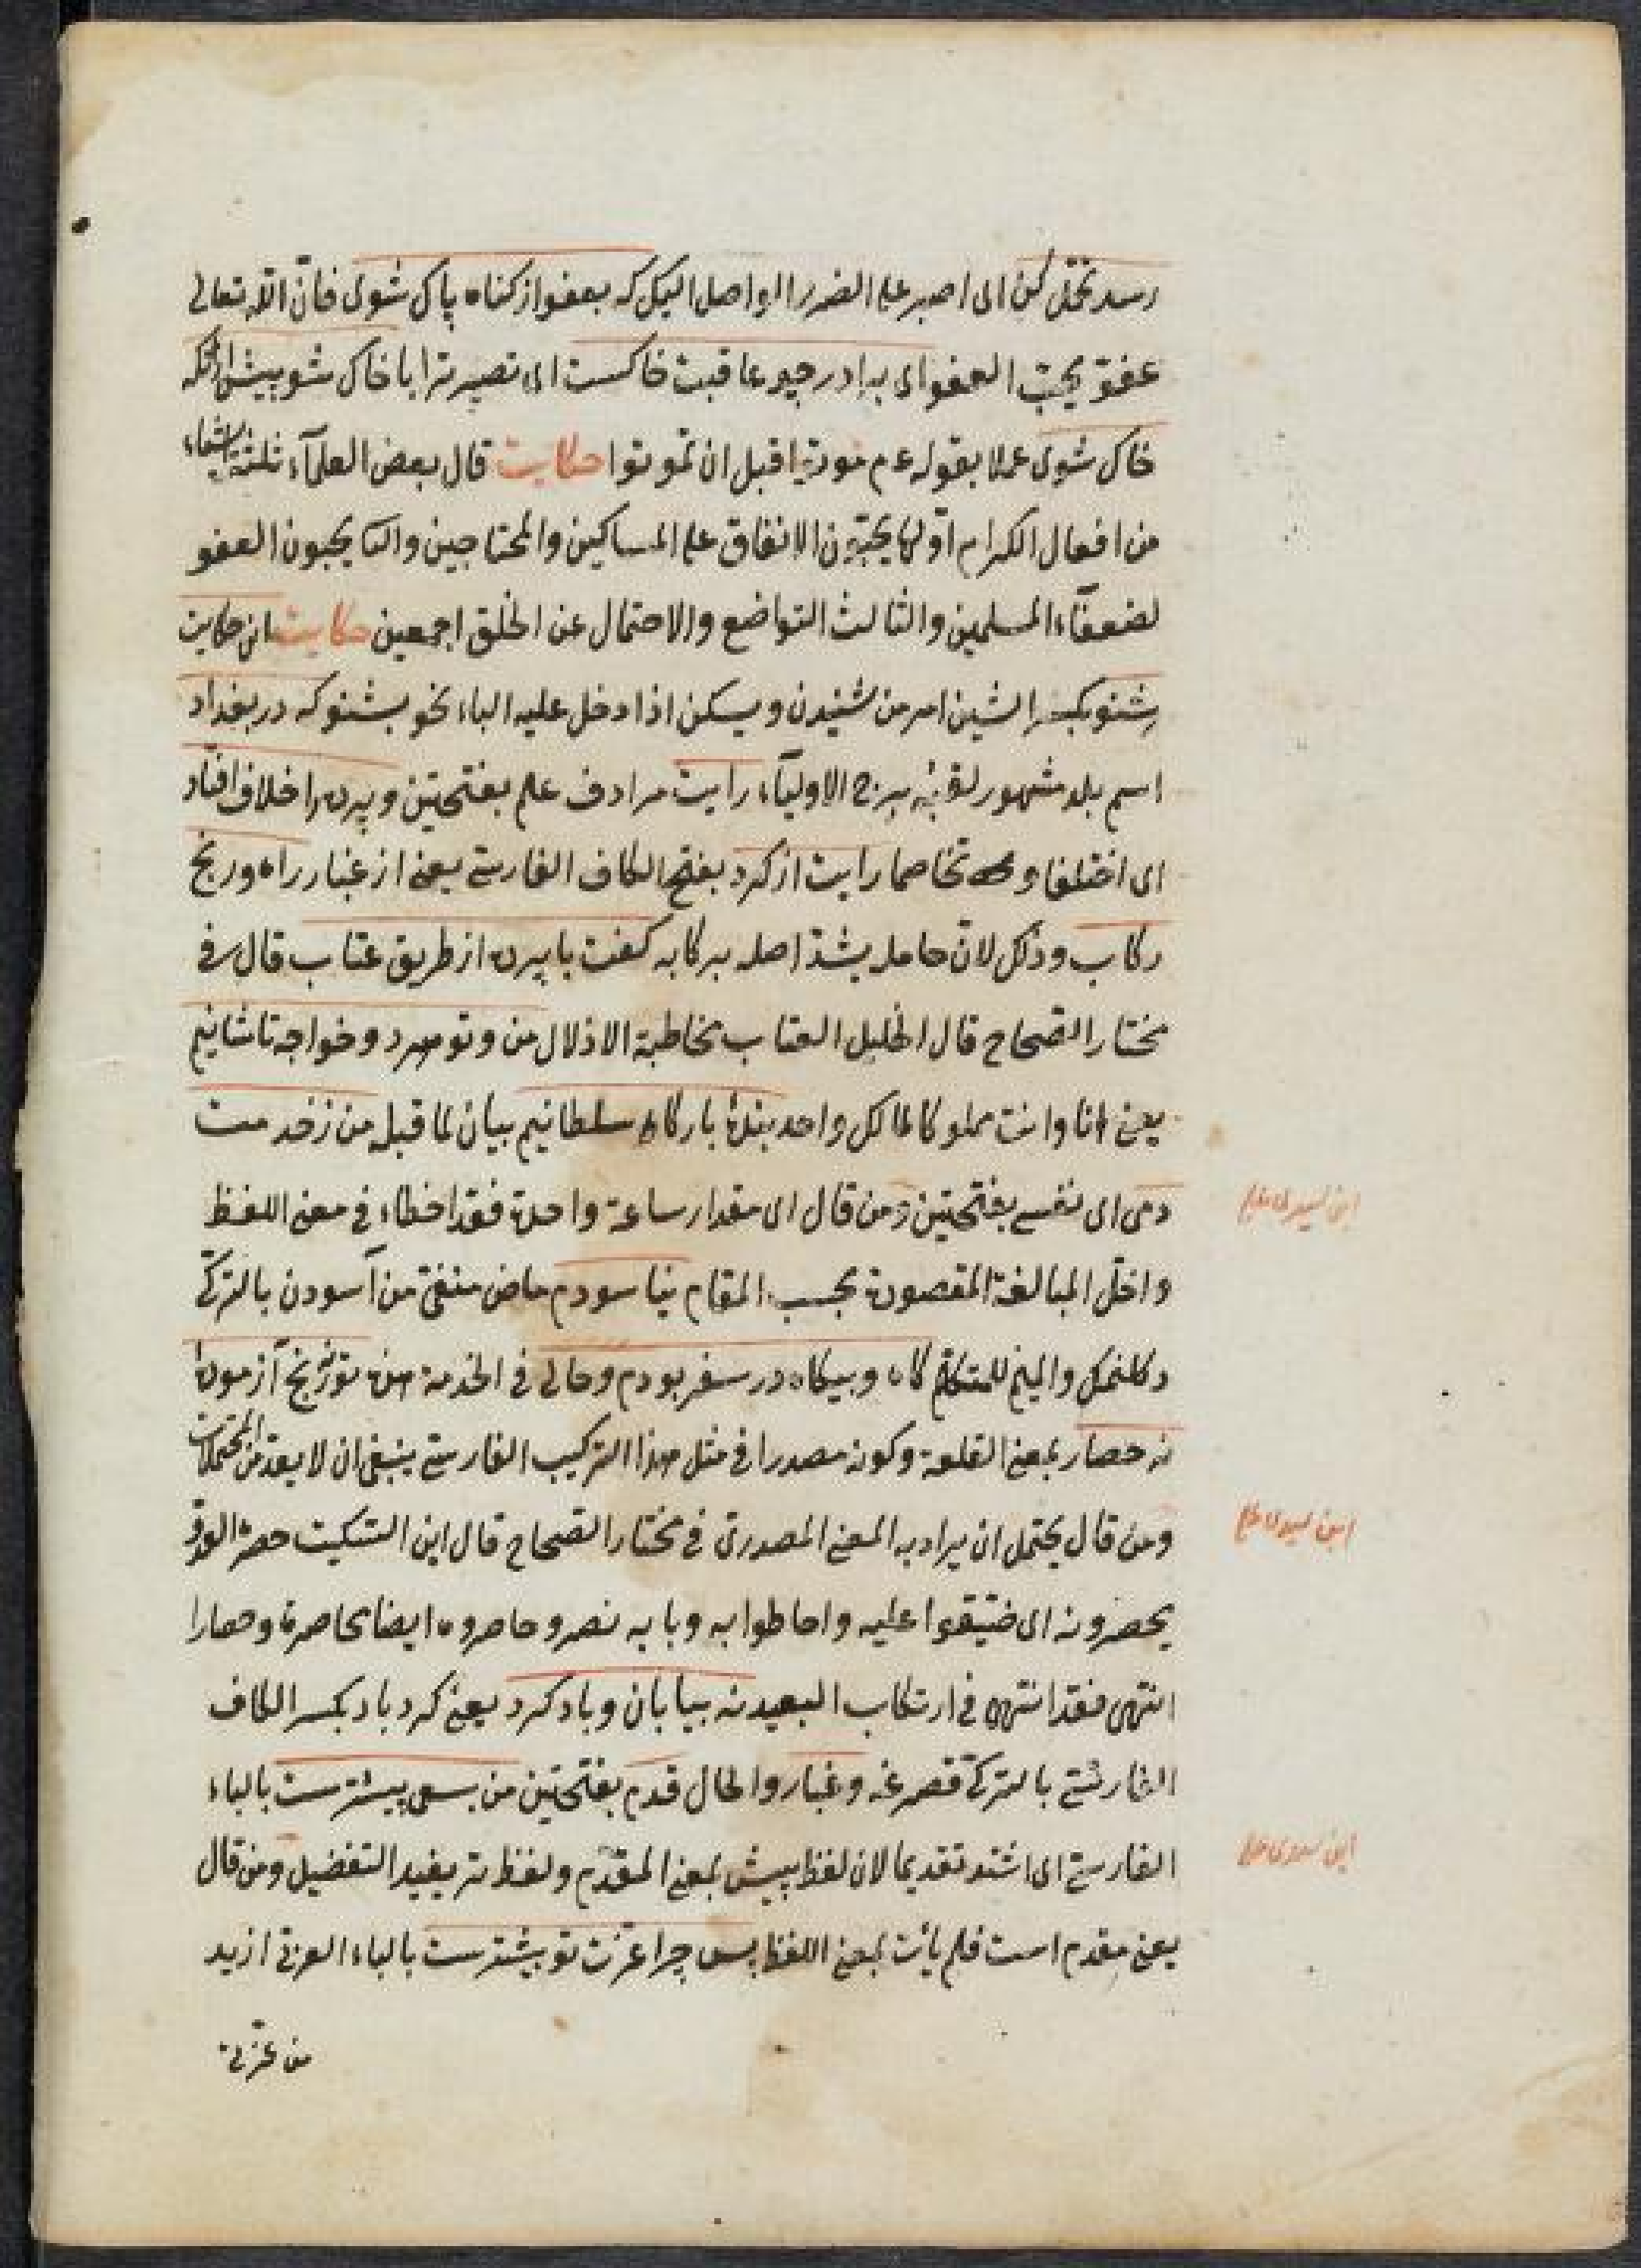 رسد تحمّل كن اى اصبر على الضرر الواصل اليك كه بعفو از كناه پاك شوى فانّ اللّه تعالى
عفوّ يحبّ العفو اى برادر چو عاقبت خاكست اى تصير ترابا خاك شو بيش ازانكه
خاك شوى عملا بقوله عم موتوا قبل ان تموتوا حكايت قال بعض العلمآء ثلثة اشياء
من افعال الكرام اوّلها يحبّون الانفاق على المساكين والمحتاجين والثانى يحبون العفو
لضعفآء المسلمين والثالث التواضع والاحتمال عن الخلق اجمعين حكايت اين حكايت
شنو بكسر الشين امر من شنيدن ويسكن اذا دخل عليه الباء نحو بشنو كه در بغداد
اسم بلد مشهور لقبه برج الاوليآء رايت مرادف علم بفتحتين وپرده را خلاف افتاد
اى اختلفا و تخاصما رايت از كرد بفتح الكاف الفارسى يعنى از غبار راه ورنج
ركاب وذلك لانّ حامله يشدّ اصله بركابه كفت با پرده از طريق عتاب قال فى
مختار الصحاح قال الخليل العتاب مخاطبة الاذلال من وتو هردو خواجه تاشانيم
يعنى انا وانت مملوكا مالك واحد بندۀ باركاه سلطانيم بيان لما قبله من زخدمت
دمى اى نفسى بفتحتين ومن قال اى مقدار ساعة واحدة فقد اخطاء فى معنى اللفظ
واخلّ المبالغة المقصودة بحسب المقام نياسودم ماض منفىّ من آسودن بالتركى
دكلنمك والميم للمتكلّم كاه وبيكاه در سفر بودم وحالى فى الخدمة هذه تو نه رنج آزمودۀ
نه حصار بمعنى القلعة وكونه مصدرا فى مثل هذا التركيب الفارسى ينبغى ان لا يعد من المحتملات
ومن قال يحتمل ان يراد به المعنى المصدرى فى مختار الصحاح قال ابن السكيت حصره العدوّ
يحصرونه اى ضيّقوا عليه واحاطوا به وبابه نصر وحاصروه ايضا محاصرة وحصارا
انتهى فقد انتهى فى ارتكاب البعيد نه بيابان وباد كرد يعنى كرد باد بكسر الكاف
الفارسى بالتركى قصرغه وغبار والحال قدم بفتحتين من بسعى پيشترست بالباء
الفارسى اى اشتد تقديما لان لفظ پيش بمعنى المقدّم ولفظ تر يفيد التفضيل ومن قال
يعنى مقدم است فلم يأت بمعنى اللفظ پس چرا عزّت تو بيشترست بالباء العربى ازيد
من عزتى
ابن سيدى على
ابن سيدى على
ابن سيدى على